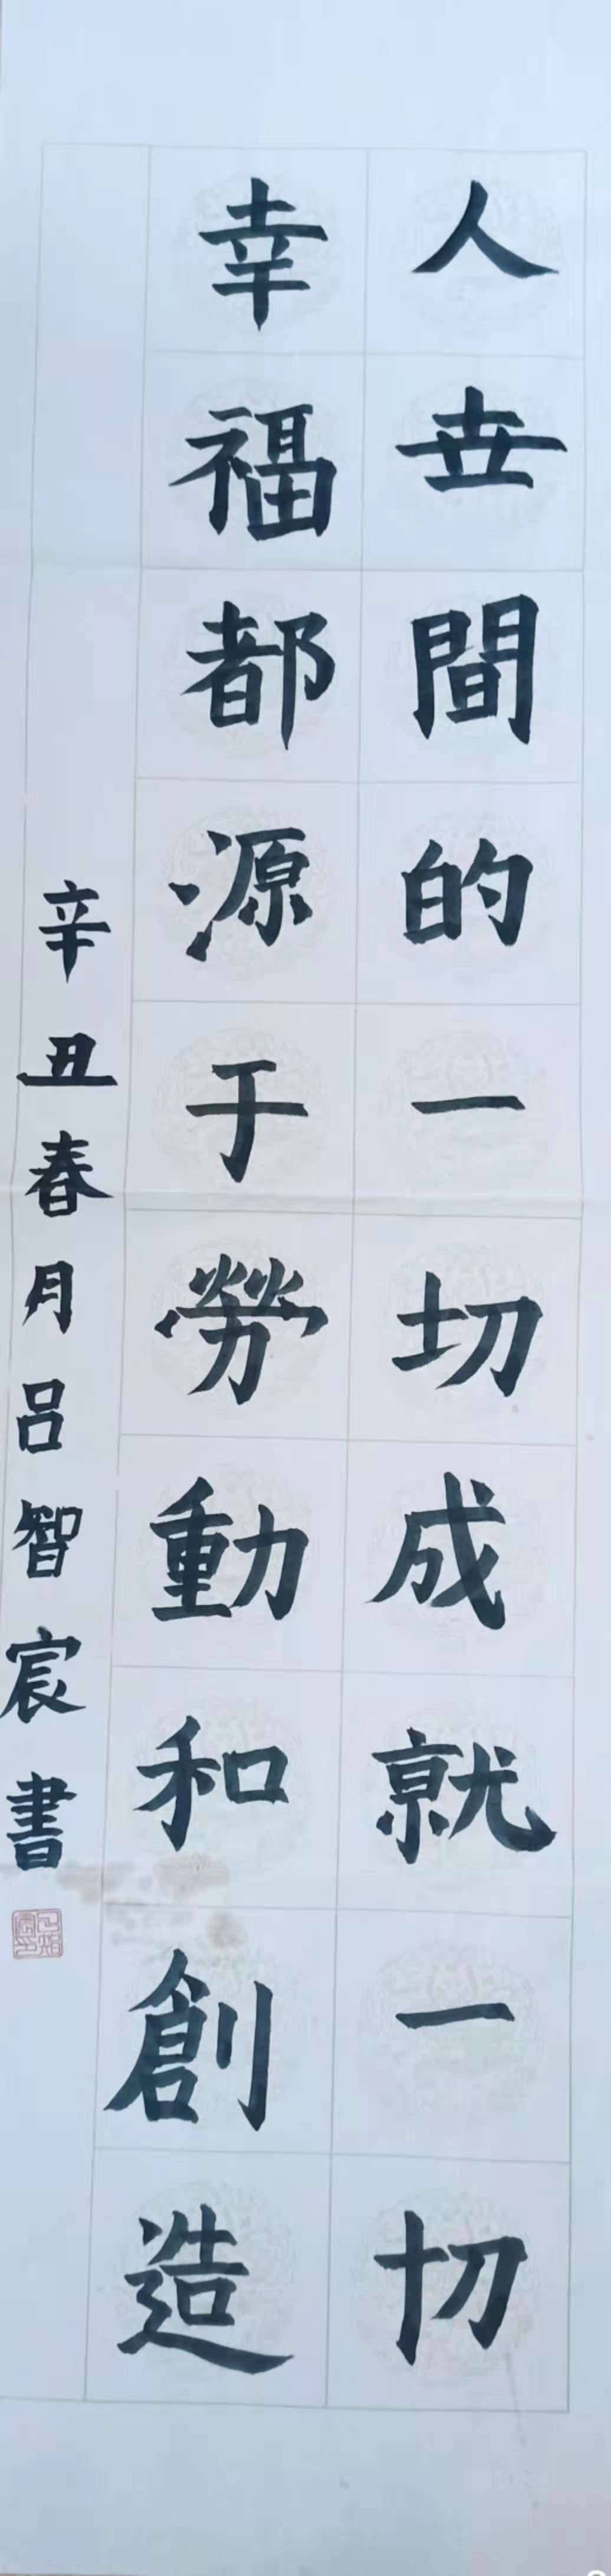 人世間的一切成就一切
幸福都源于勞動和創造
辛丑春月吕智宸書